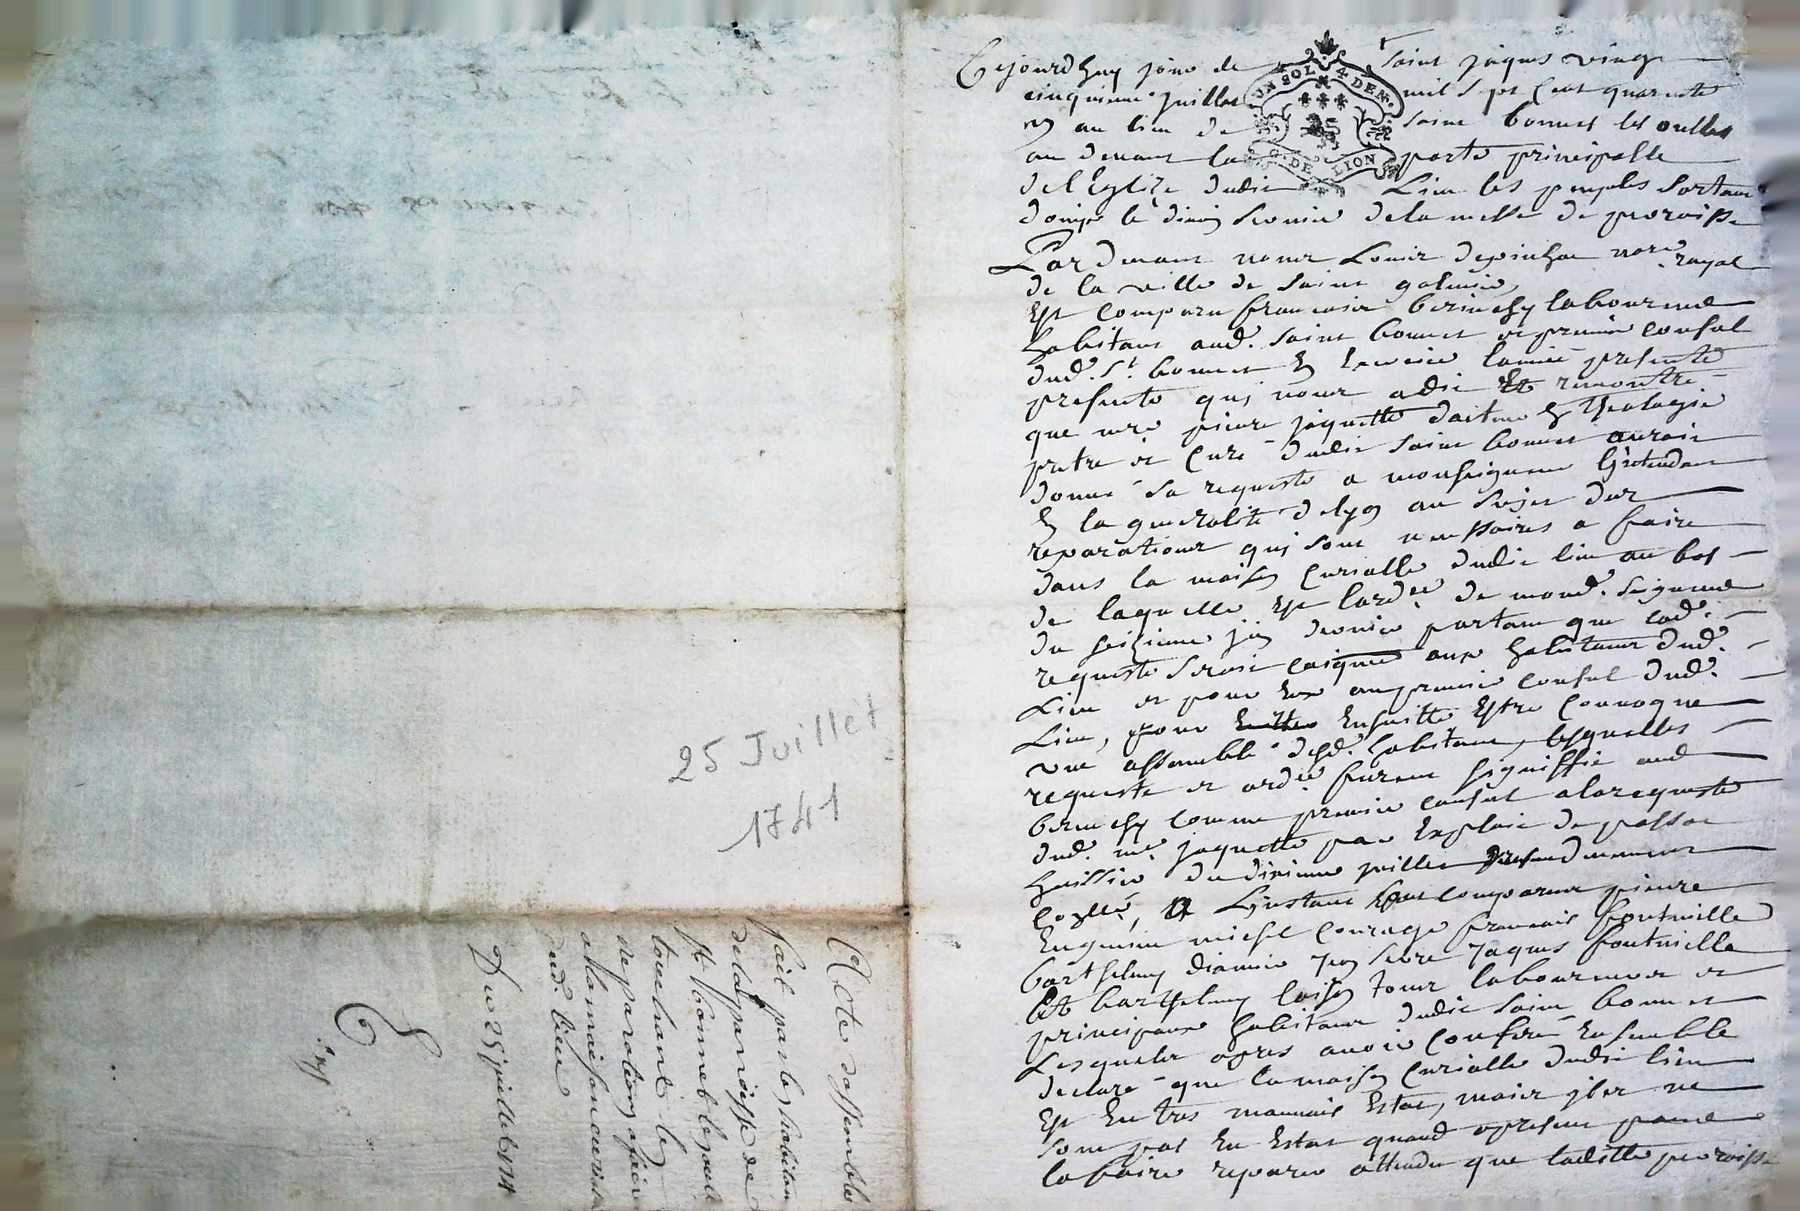 25 Juillet
1741
Acte dassemblée
fait par les habitans
de la parroisse de
St bonnet les oulles
touchant les
reparations a faire
a la maison curialle
dud. lieu
Du 25 juillet 1741
Cejourdhuy jour de saint jaques vingt
cinquieme juillet mil sept cent quarente
un au lieu de saint bonnet les oulles
au devant la porte principalle
de l'Eglize dudit Lieu les peuples sortant
douyr le divin service de la messe de parroisse
Pardevant nous Louis notre royal
de la ville de saint galmier
Est comparu francois laboureur
habitant aud. saint bonnet et premier consul
dud. St. bonnet En Exercice lannée presente
presente qui nous a dit Et remontré
que mre pierre jaquette docteur En theologie
pretre et Curé dudit saint bonnet auroit
donné sa requeste a monseigneur Lintendant
En la generalité de lyon au sujet des
reparations qui sont necessaires a faire
dans la maison Curialle dudit lieu au bas
de laquelle Est lordce de mond. seigneur
du seizieme juin dernier portant que lad.
requeste seroit aux habitans dud.
Lieu et pour Eux au premier consul dud.
Lieu, pour Ensuitte Estre Convoqué
une assemblée desd. habitans, lesquelles
requeste et ordce furent signiffié aud
comme premier consul a la requeste
dud. mre jaquette par Exploit de
huissier du dixieme juillet
Linstant sont comparus pierre
michel courage francois fontvieille
barthelemy jaques fontvieille
Et barthelemy tous laboureurs et
principaux habitans dudit saint bonnet
Lesquels apres avoir conferé Ensemble
declaré que la maison Curialle dudit lieu
Est En tres mauvais Estat, mais ils ne
sont pas En Estat quand a present pour
la faire reparer attendu que ladite parroisse
UN SOL 4 DEN.
G. DE LION